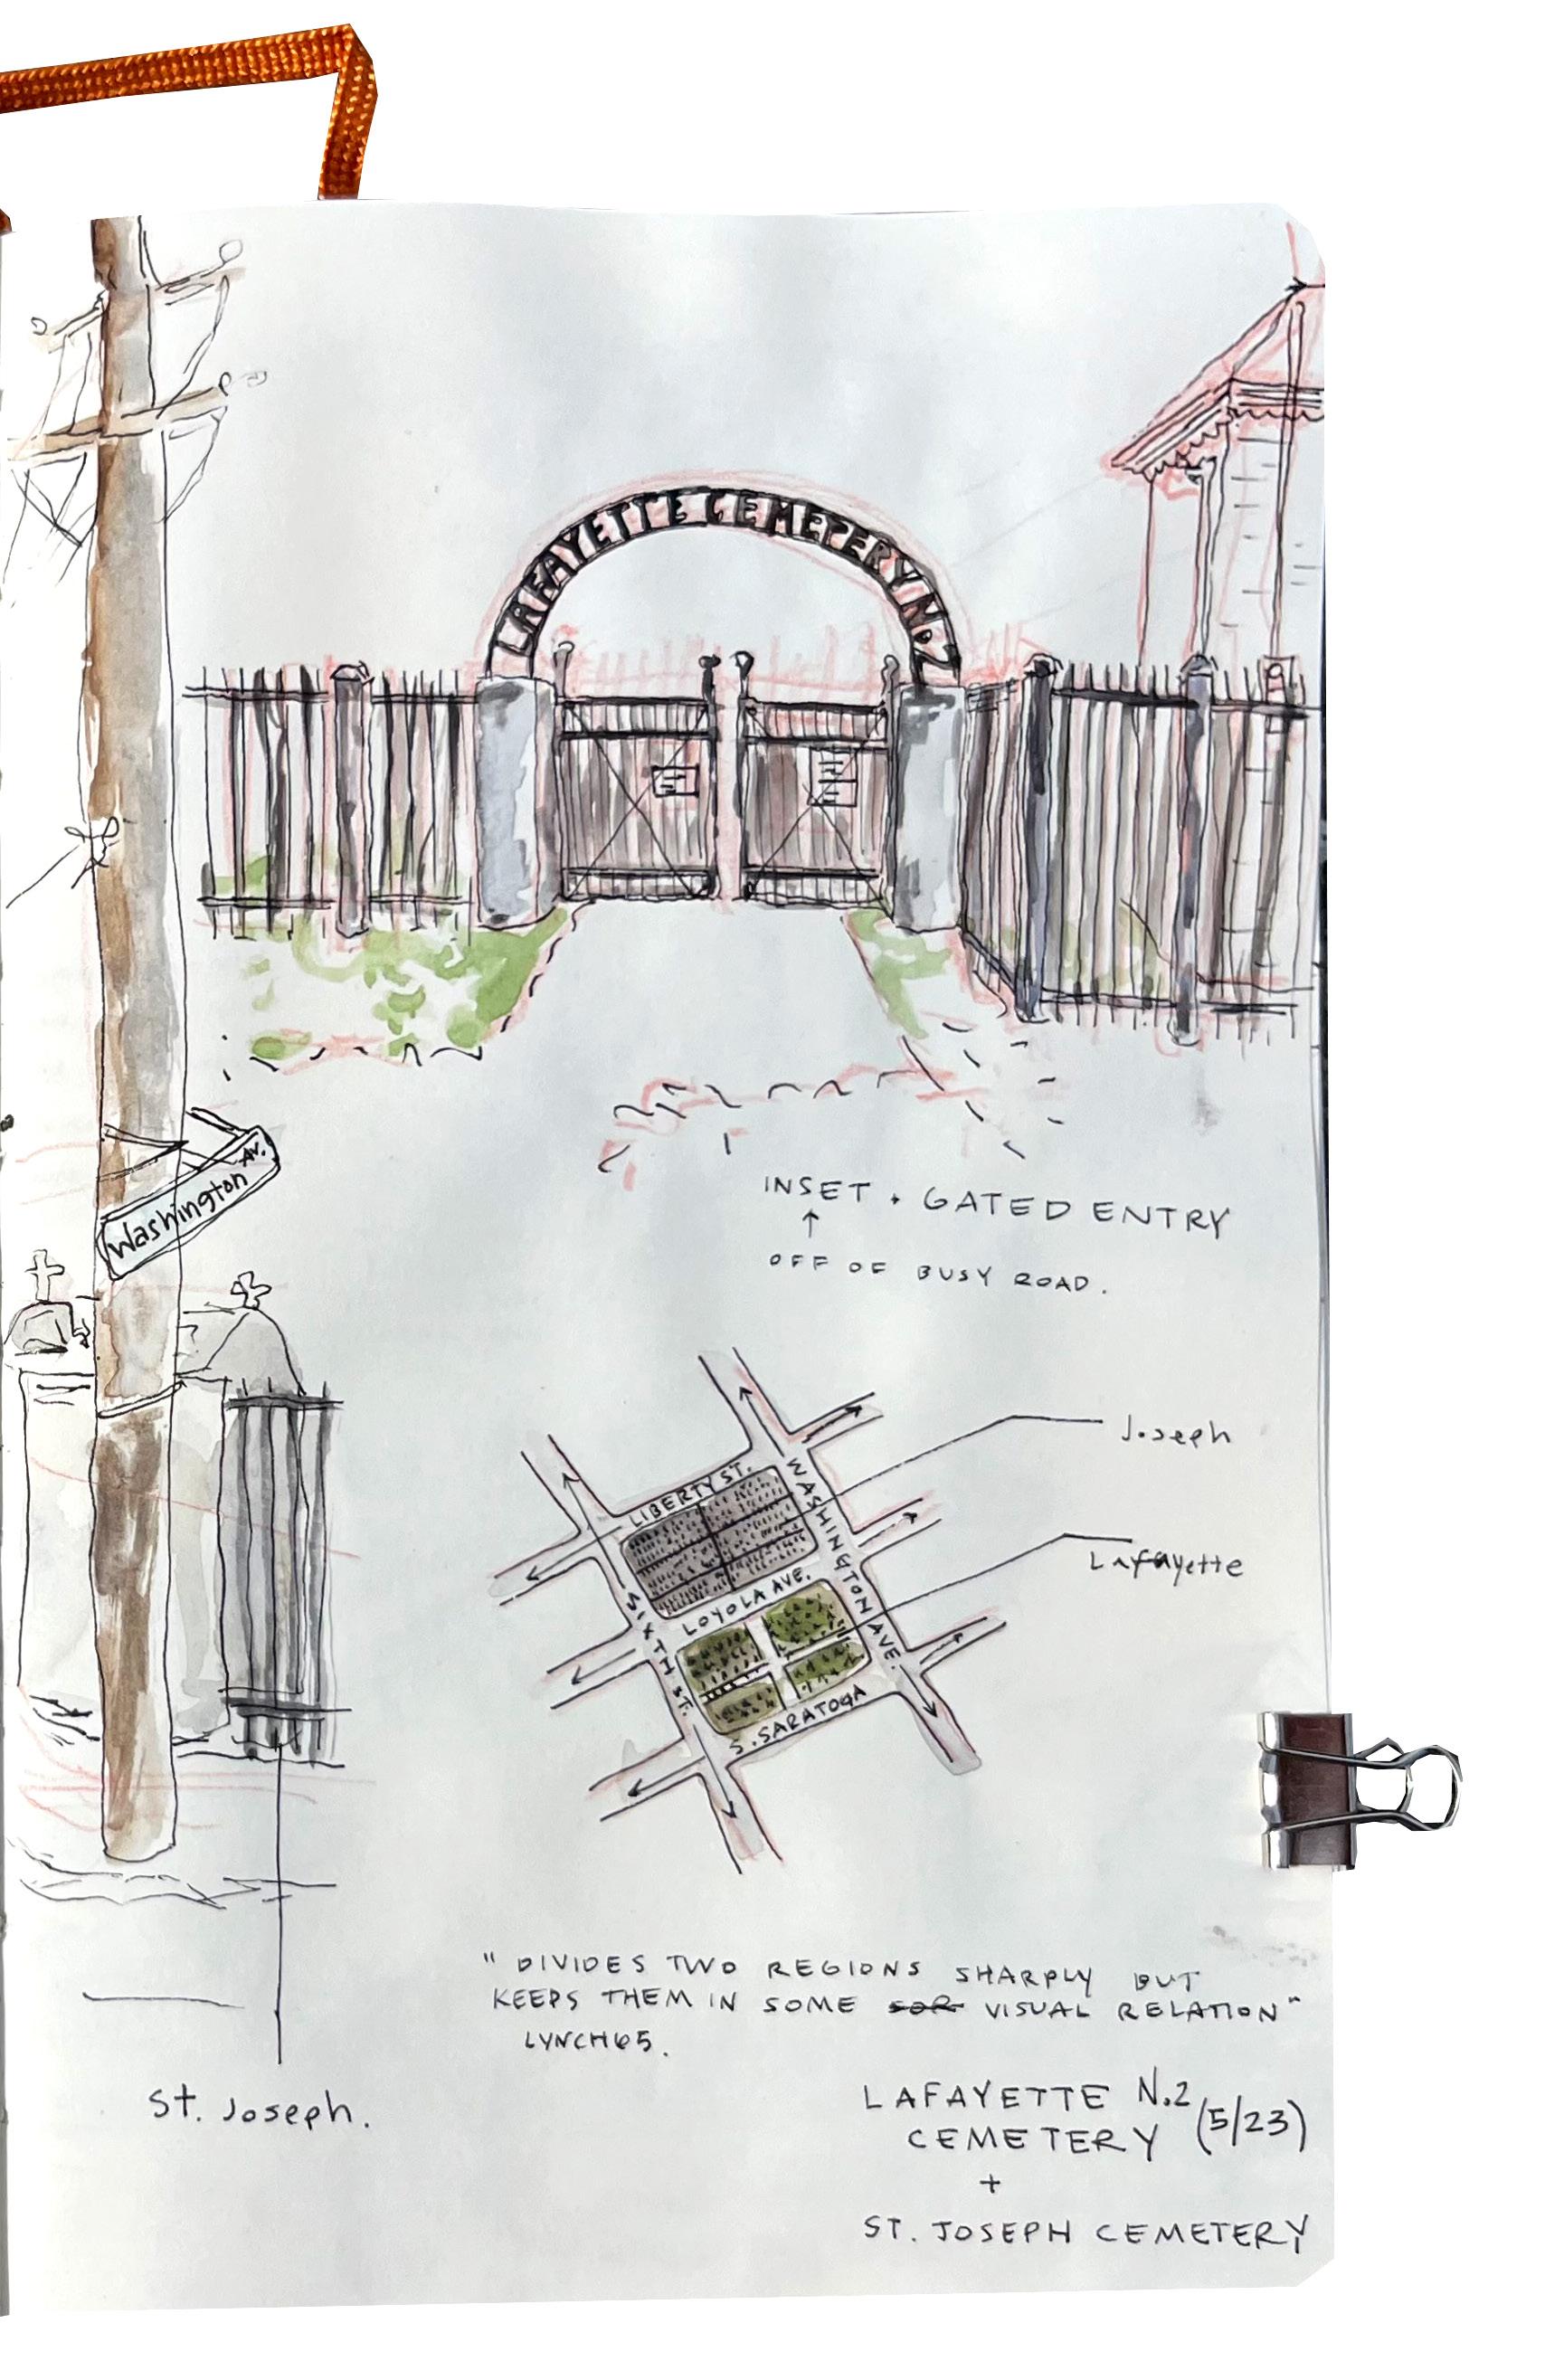 LAFAYETTE CEMETERY No. 2
Washington Av.
INSET + GATED ENTRY
OFF OF BUSY ROAD.
Joseph
LIBERTY ST.
WASHINGTON AVE.
Lafayette
LOYOLA AVE.
SIXTH ST.
S. SARATOGA
"DIVIDES TWO REGIONS SHARPLY BUT
KEEPS THEM IN SOME SOR VISUAL RELATION"
LYNCH 65.
St. Joseph.
LAFAYETTE N.2
CEMETERY (5/23)
+
ST. JOSEPH CEMETERY